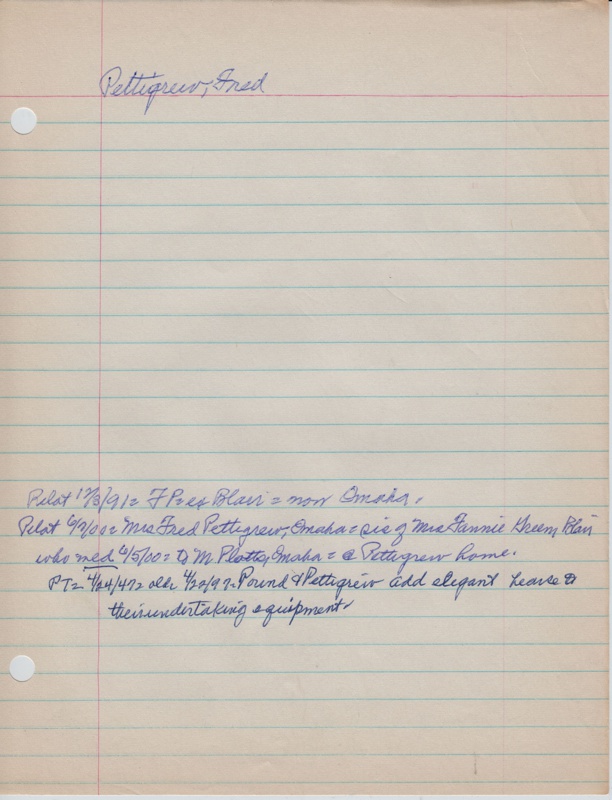 Pettigrew, Fred
Pilot 12/3/91= F P= ex Blair = now Omaha.
Pilot 6/7/00= Mrs Fred Pettigrew, Omaha = sis of Mrs Fannie Green, Blair
who med 6/5/00= to M Plotts, Omaha = @ Pettigrew home.
PT= 4/24/47= olde 4/22/97= Pound & Pettigrew add elegant hearse to
their undertaking equipment